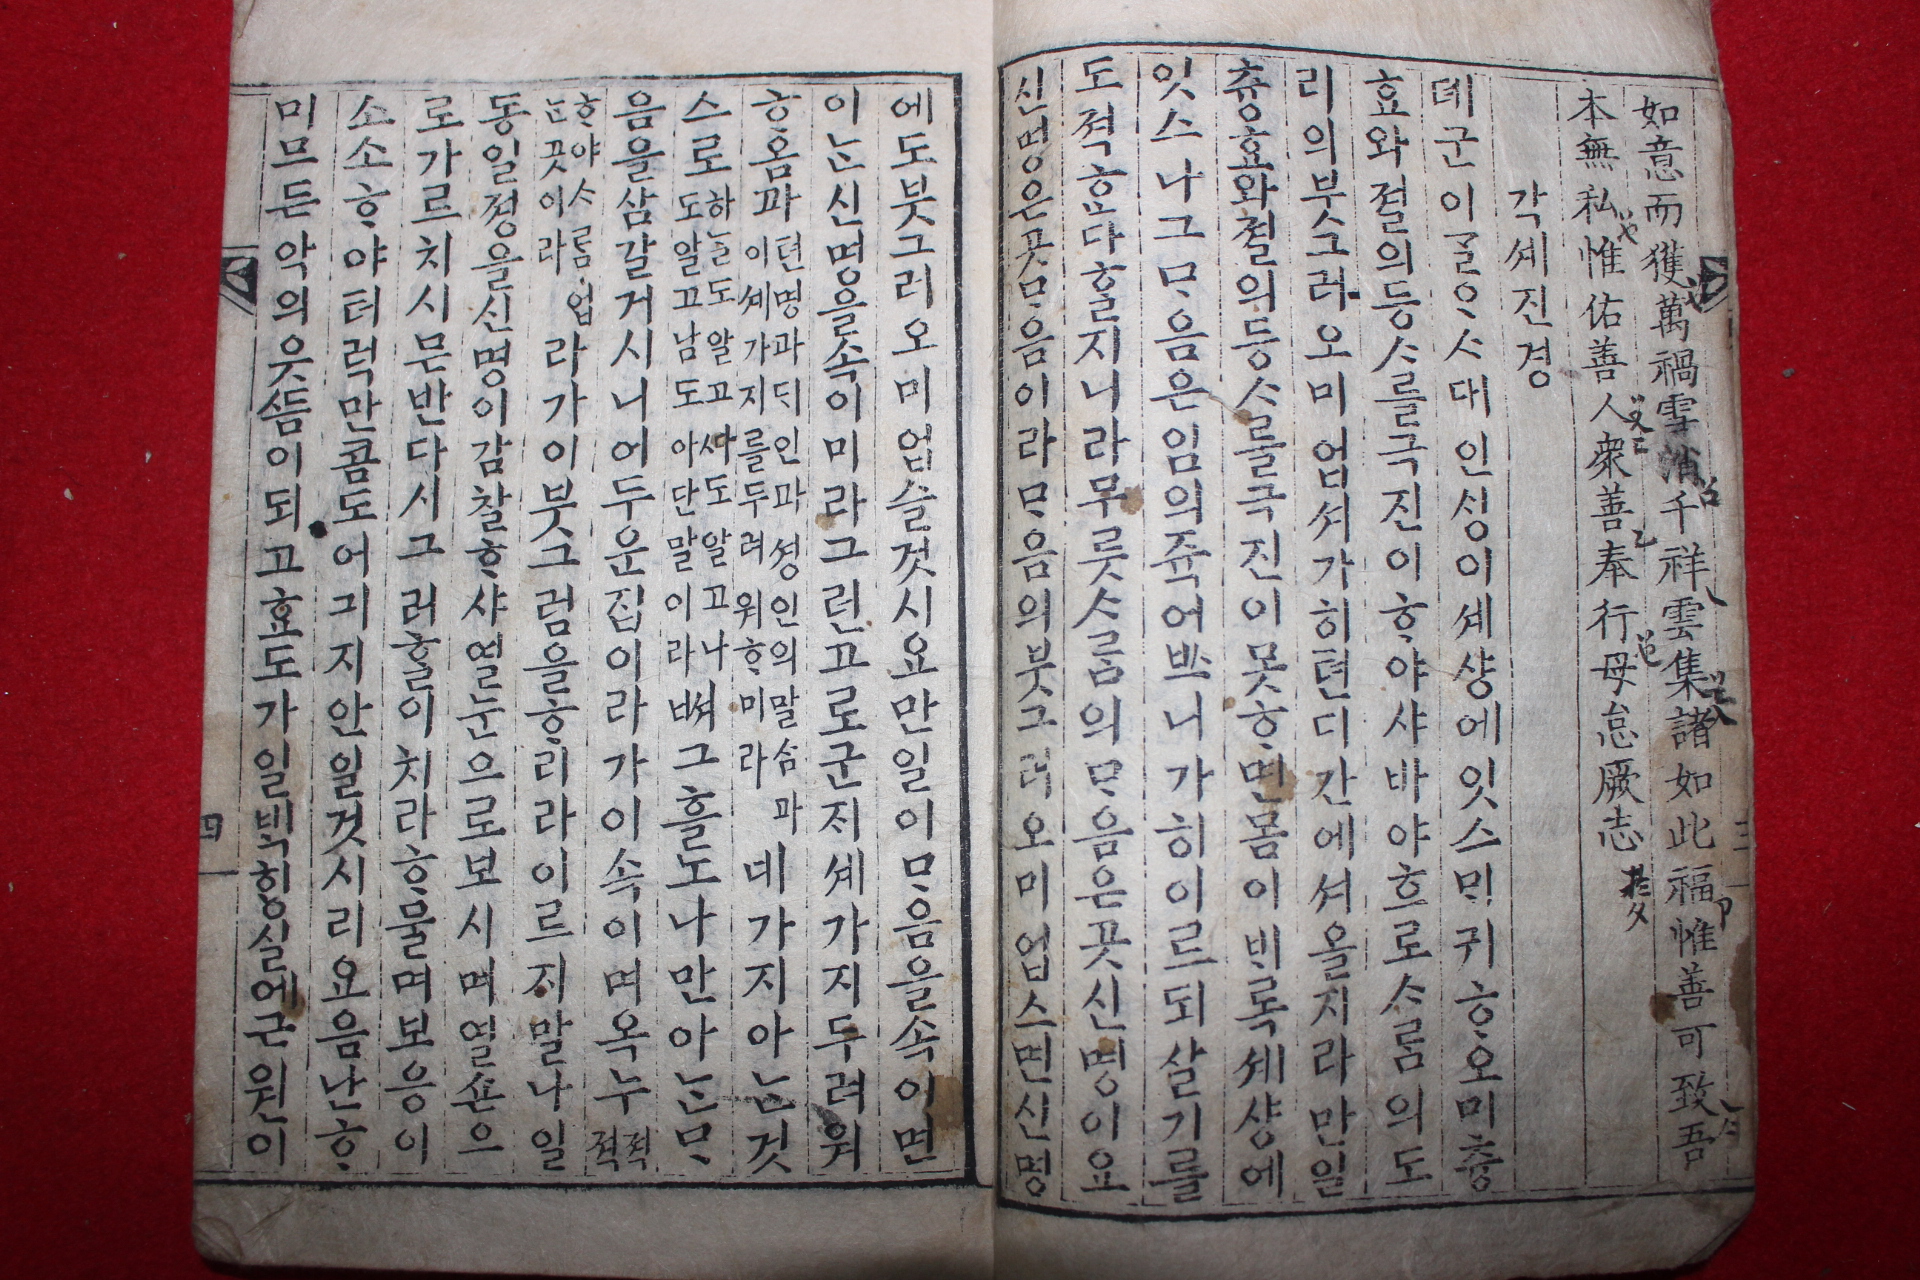 如意而獲萬禍雪消千祥雲集諸如此福惟善可致吾
本無私惟佑善人衆善奉行母怠厥志
각셰진경
뎨군이ᄀᆞᆯᄋᆞᄉᆞ대인싱이셰샹에잇스ᄆᆡ귀ᄒᆞ오미츙
효와졀의등ᄉᆞ를극진이ᄒᆞ야샤바야흐로ᄉᆞ름의도
리의부ᄭᅳ러오미업셔가히텬디간에셔올지라만일
츙효와졀의등ᄉᆞ를극진이못ᄒᆞ면몸이비록셰샹에
잇스나그ᄆᆞ음은임의쥭어ᄡᅳ니가히이르되살기를
도젹ᄒᆞᆫ다ᄒᆞᆯ지니라무릇ᄉᆞ름의ᄆᆞ음은곳신명이요
신명은곳ᄆᆞ음이라ᄆᆞ음의붓그러오미업스면신명
에도붓그러오미업슬것시요만일이ᄆᆞ음을속이면
이ᄂᆞᆫ신명을속이미라그런고로군ᄌᆞ셰가지두려워
ᄒᆞ홈과
텬명과ᄃᆡ인과셩인의말ᄉᆞᆷ과
이셰가지를두려워ᄒᆞ미라
네가지아ᄂᆞᆫ것
스로
하ᄂᆞᆯ도알고ᄯᅡ도알고나
도알고남도아단말이라
ᄡᅥ그흘도나만아ᄂᆞᆫᄆᆞ
음을삼갈거시니어두운집이라가이속이며옥누
젹젹
ᄒᆞ야ᄉᆞᄅᆞᆷ업
ᄂᆞᆫ곳이라
라가이붓그럼을ᄒᆞ리라이르지말나일
동일졍을신명이감찰ᄒᆞ샤열눈으로보시며열손으
로가르치시믄반다시그러ᄒᆞᆯ이치라ᄒᆞ물며보응이
소소ᄒᆞ야터럭만콤도어긔지안일것시리요음난ᄒᆞ
미므든악의웃듬이되고효도가일ᄇᆡᆨᄒᆡᆼ실에근원이
三
四